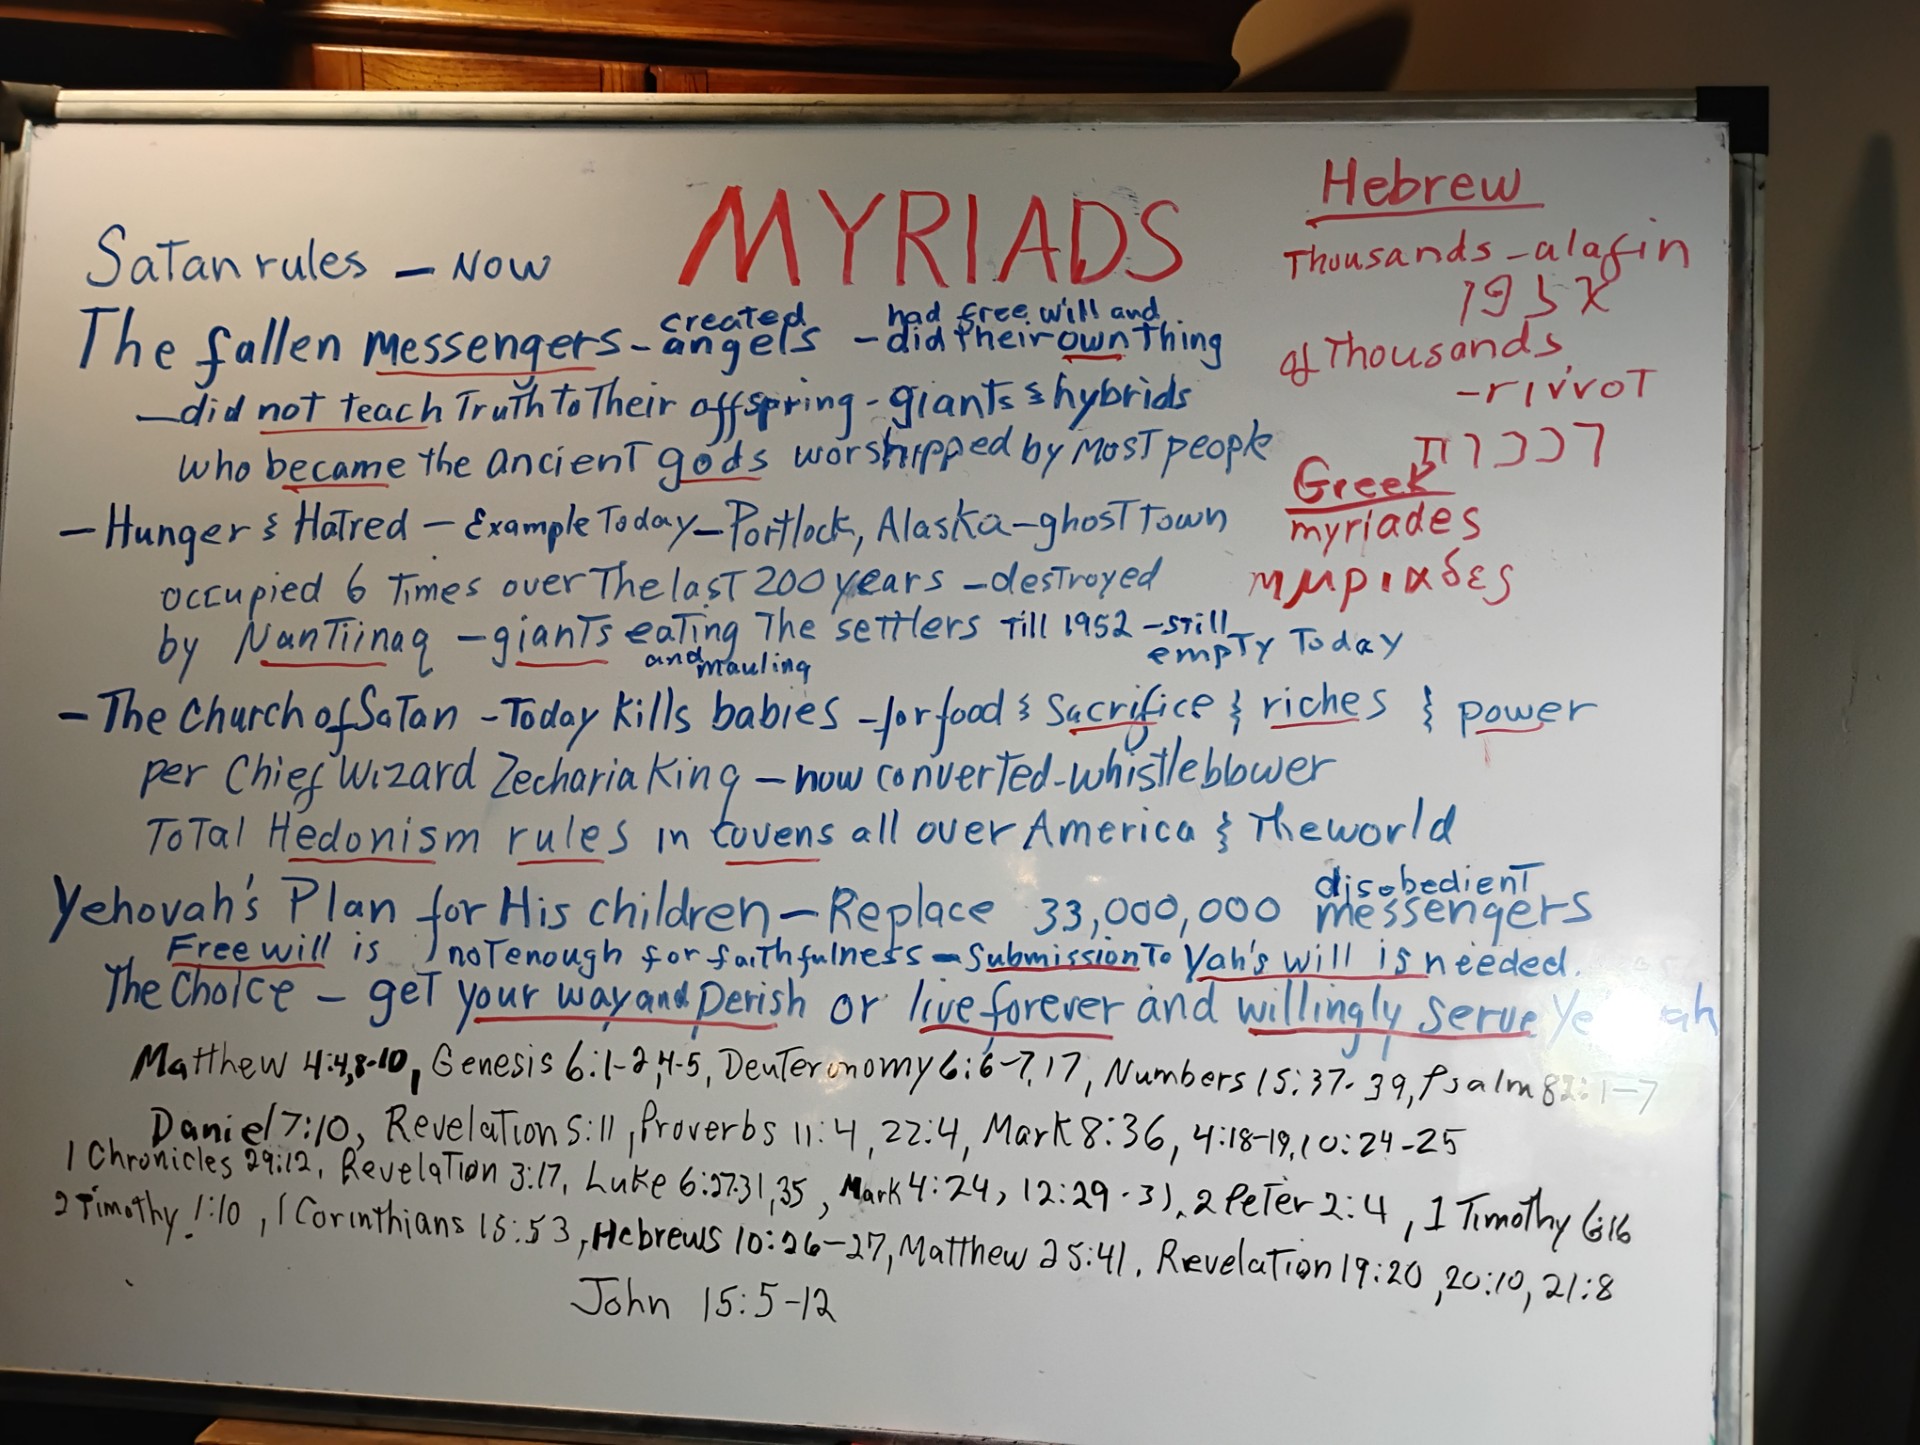 MYRIADS
Satan rules — Now
The fallen messengers - created angels - had free will and did their own thing
— did not teach Truth to Their offspring - giants & hybrids
who became the ancient gods worshipped by Most people
— Hunger & Hatred — Example Today — Portlock, Alaska — ghost Town
occupied 6 Times over The last 200 years — destroyed
by NanTiinaq — giants eating and mauling The settlers Till 1952 — still empty Today
— The Church of Satan - Today Kills babies — for food & Sacrifice & riches & power
per Chief Wizard Zecharia King — now converted - whistleblower
Total Hedonism rules in covens all over America & The world
Yehovah's Plan for His children — Replace 33,000,000 disobedient messengers
Free will is not enough for faithfulness — Submission To Yah's will is needed.
The Choice — get your way and perish or live forever and willingly serve
Matthew 4:4,8-10, Genesis 6:1-2,4-5, Deuteronomy 6:6-7,17, Numbers 15:37-39, Psalm 82:1-7
Daniel 7:10, Revelation 5:11, Proverbs 11:4, 22:4, Mark 8:36, 4:18-19, 10:24-25
1 Chronicles 29:12, Revelation 3:17, Luke 6:27-31,35, Mark 4:24, 12:29-31, 2 Peter 2:4, 1 Timothy 6:16
2 Timothy 1:10, 1 Corinthians 15:53, Hebrews 10:26-27, Matthew 25:41, Revelation 19:20, 20:10, 21:8
John 15:5-12
Hebrew
Thousands - alafin
אלפן
of Thousands
- rivvot
רבבות
Greek
myriades
μυριαδες